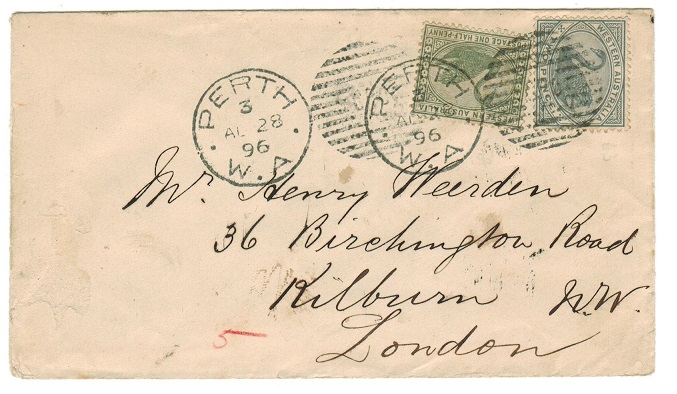 POSTAGE ONE HALF-PENNY
WESTERN AUSTRALIA
WESTERN AUSTRALIA
PERTH
3
AU 28
96
W.A
PERTH
96
W.A
Mr. Henry Weerden
36 Birchington Road
Kilburn N.W.
London
5